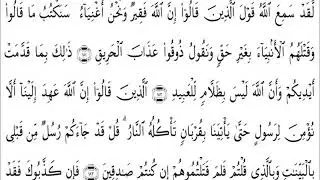 لَّقَدْ سَمِعَ ٱللَّهُ قَوْلَ ٱلَّذِينَ قَالُوٓا۟ إِنَّ ٱللَّهَ فَقِيرٌ وَنَحْنُ أَغْنِيَآءُ ۘ سَنَكْتُبُ مَا قَالُوا۟
وَقَتْلَهُمُ ٱلْأَنۢبِيَآءَ بِغَيْرِ حَقٍّ وَنَقُولُ ذُوقُوا۟ عَذَابَ ٱلْحَرِيقِ ۝١٨١ ذَٰلِكَ بِمَا قَدَّمَتْ
أَيْدِيكُمْ وَأَنَّ ٱللَّهَ لَيْسَ بِظَلَّامٍ لِّلْعَبِيدِ ۝١٨٢ ٱلَّذِينَ قَالُوٓا۟ إِنَّ ٱللَّهَ عَهِدَ إِلَيْنَآ أَلَّا
نُؤْمِنَ لِرَسُولٍ حَتَّىٰ يَأْتِيَنَا بِقُرْبَانٍ تَأْكُلُهُ ٱلنَّارُ ۗ قُلْ قَدْ جَآءَكُمْ رُسُلٌ مِّن قَبْلِى
بِٱلْبَيِّنَٰتِ وَبِٱلَّذِى قُلْتُمْ فَلِمَ قَتَلْتُمُوهُمْ إِن كُنتُمْ صَٰدِقِينَ ۝١٨٣ فَإِن كَذَّبُوكَ فَقَدْ